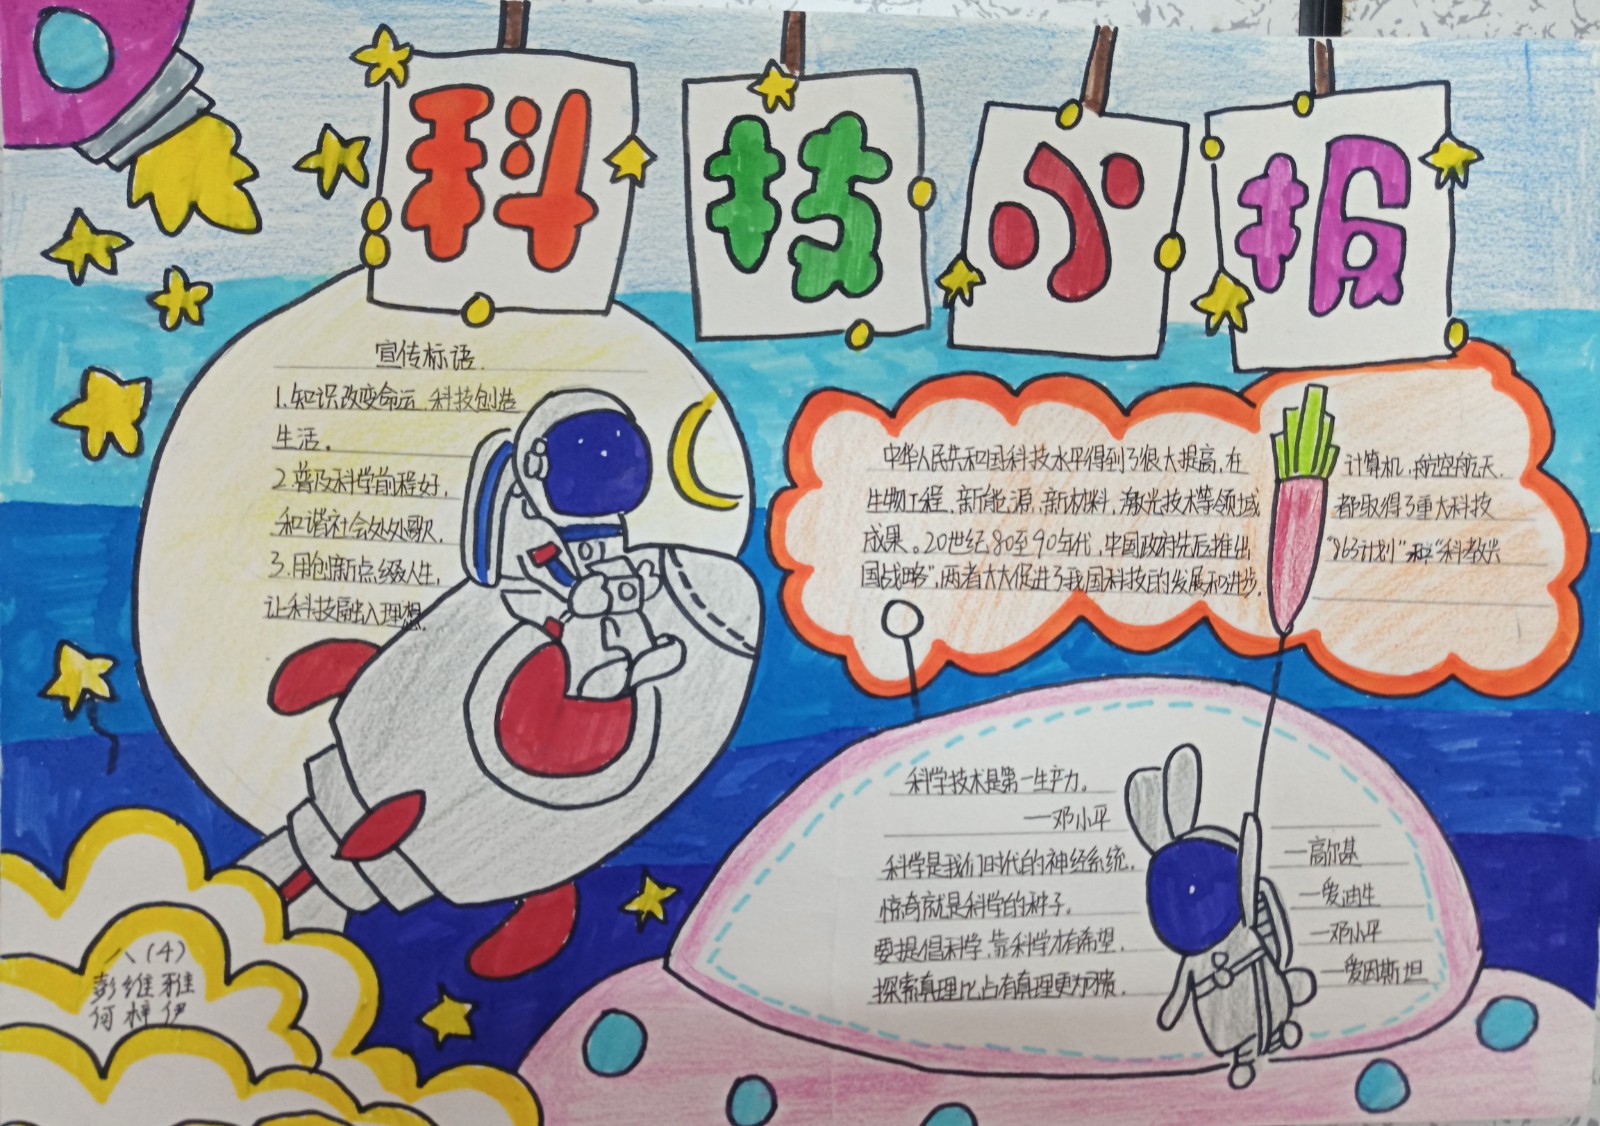 科技小报
宣传标语
1.知识改变命运 科技创造
生活。
2.普及科学前程好,
和谐社会处处歌,
3.用创新点缀人生,
让科技融入理想
中华人民共和国科技水平得到了很大提高,在 计算机,航空航天.
生物工程,新能源,新材料,激光技术等领域 都取得了重大科技
成果。20世纪80至90年代,中国政府先后推出 “863计划”和“科教兴
国战略”,两者大大促进了我国科技的发展和进步.
科学技术是第一生产力。
—邓小平
科学是我们时代的神经系统. —高尔基
惊奇就是科学的种子. —爱迪生
要提倡科学,靠科学才有希望. —邓小平
探索真理比占有真理更为可贵. —爱因斯坦
八(4)
彭维雅
何梓伊